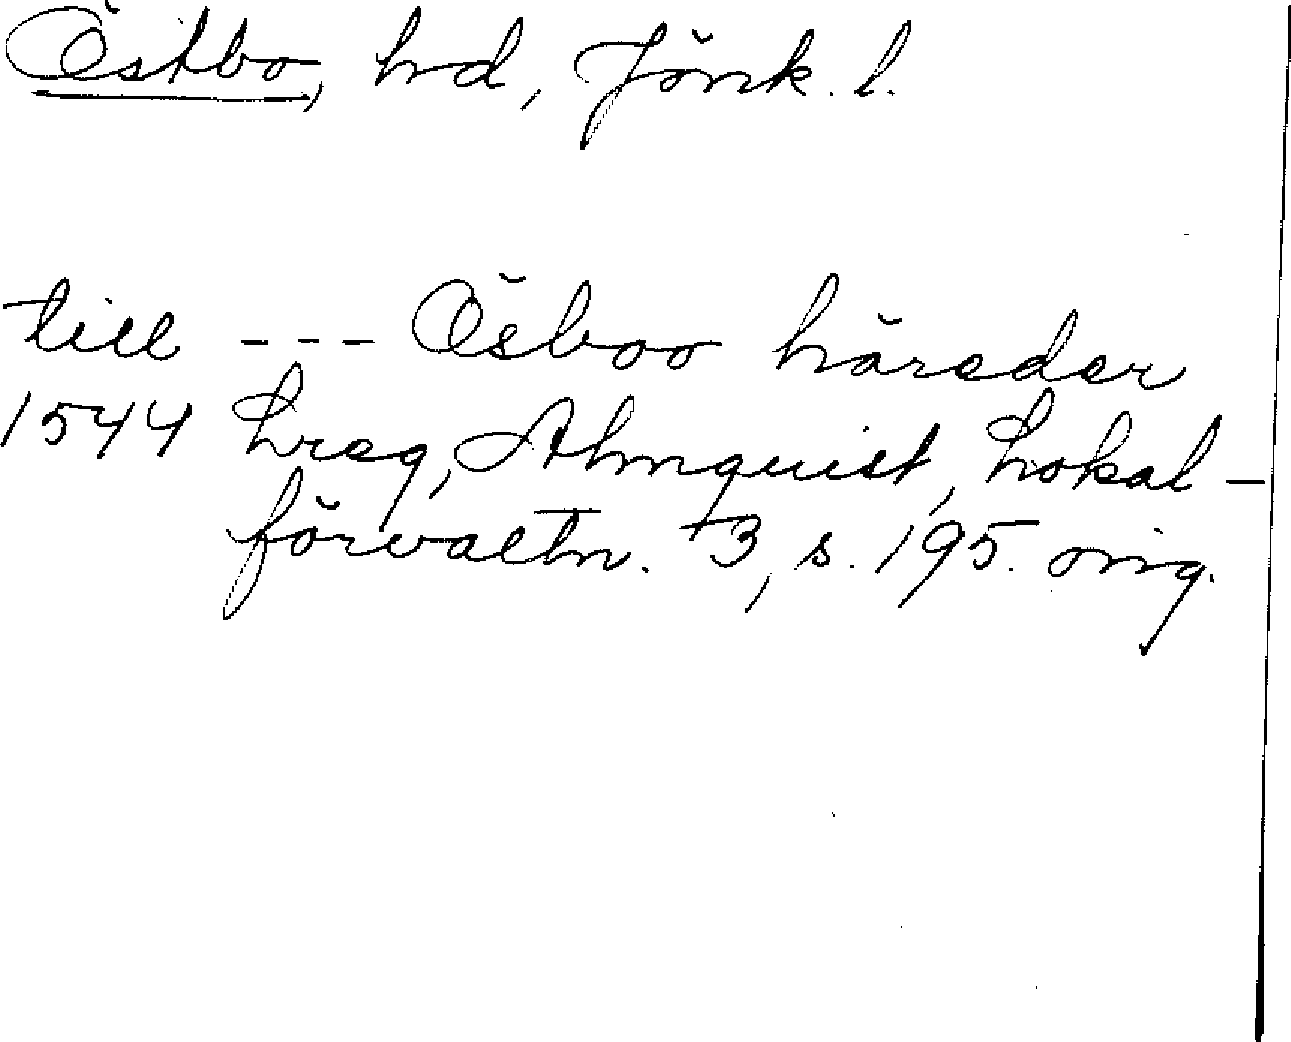 Östbo, hd, Jönk. l.
till --- Ösboo häreder
1544 Lreg, Almquist, Lokal-
förvaltn. 3, s. 195. orig.